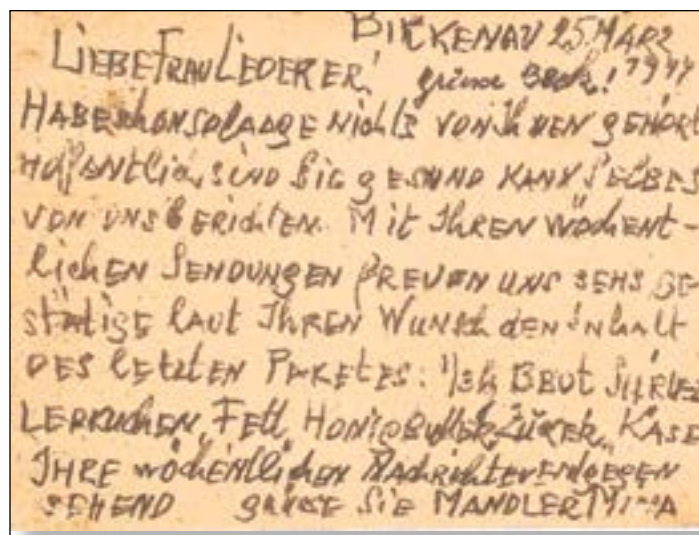 BIRKENAU 25. MÄRZ
LIEBE FRAU LEDERER! 1944
HABE SCHON SO LANGE NICHTS VON IHNEN GEHÖRT
HOFFENTLICH SIND SIE GESUND KANN SELBES
VON UNS BERICHTEN. MIT IHREN WÖCHENT-
LICHEN SENDUNGEN FREUEN UNS SEHR BE-
STÄTIGE LAUT IHREN WUNSCH DEN INHALT
DES LETZTEN PAKETES: BROT
LEBKUCHEN, FETT, HONIG ZUCKER, KÄSE
IHRE WÖCHENTLICHEN NACHRICHTEN ENTGEGEN
SEHEND grüsst Sie MANDLER